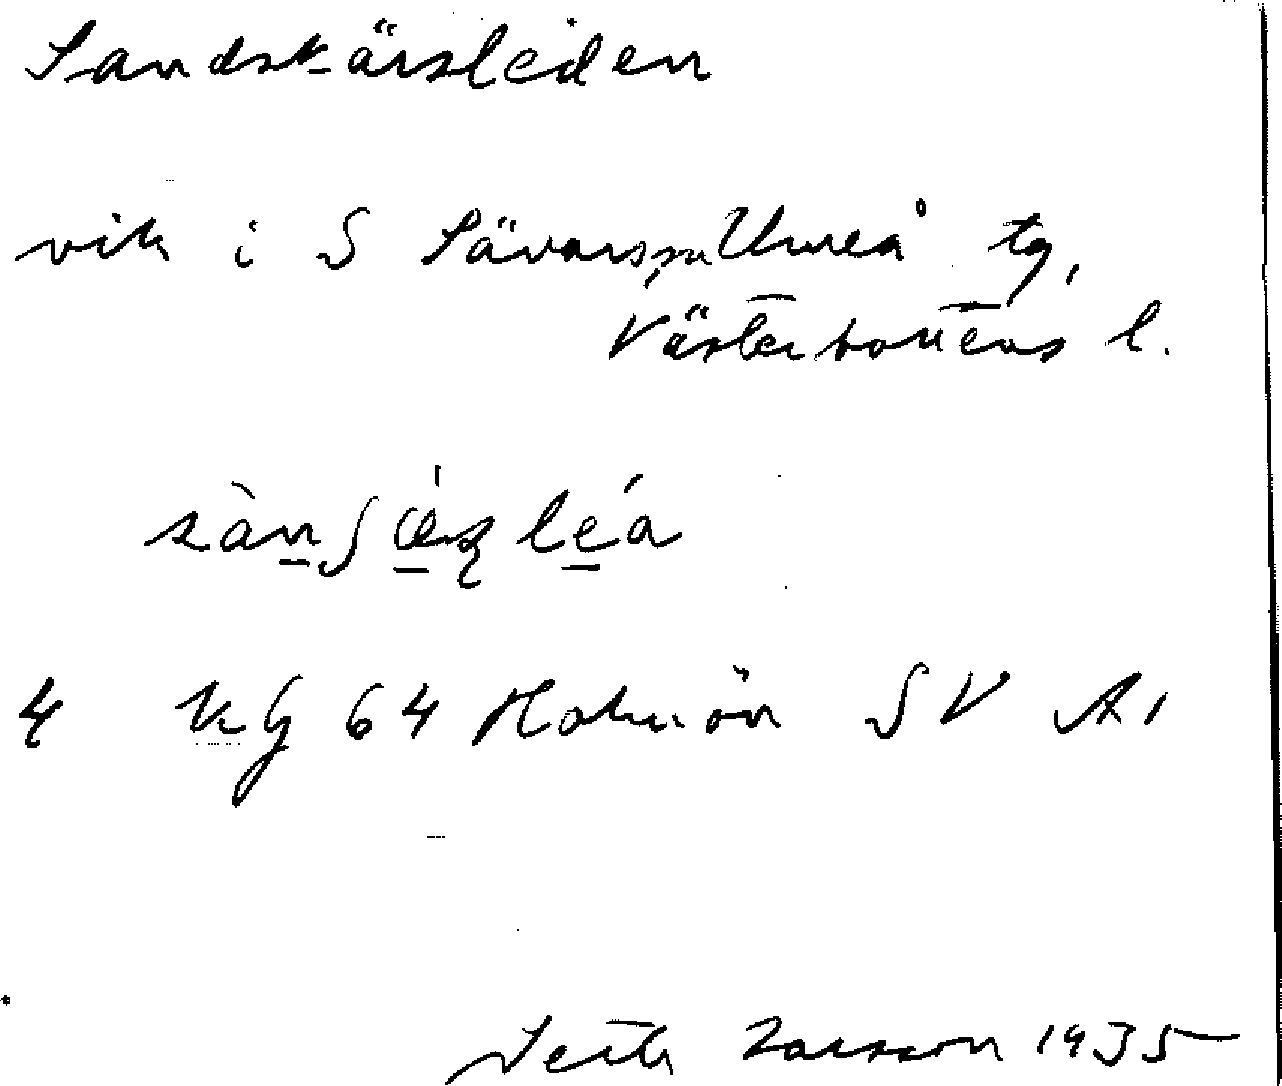 Sandskärsleden
vik i S Sävars sn Umeå tg,
Västerbottens l.
4 KG 64 Holmön SV A1
Larsson 1935